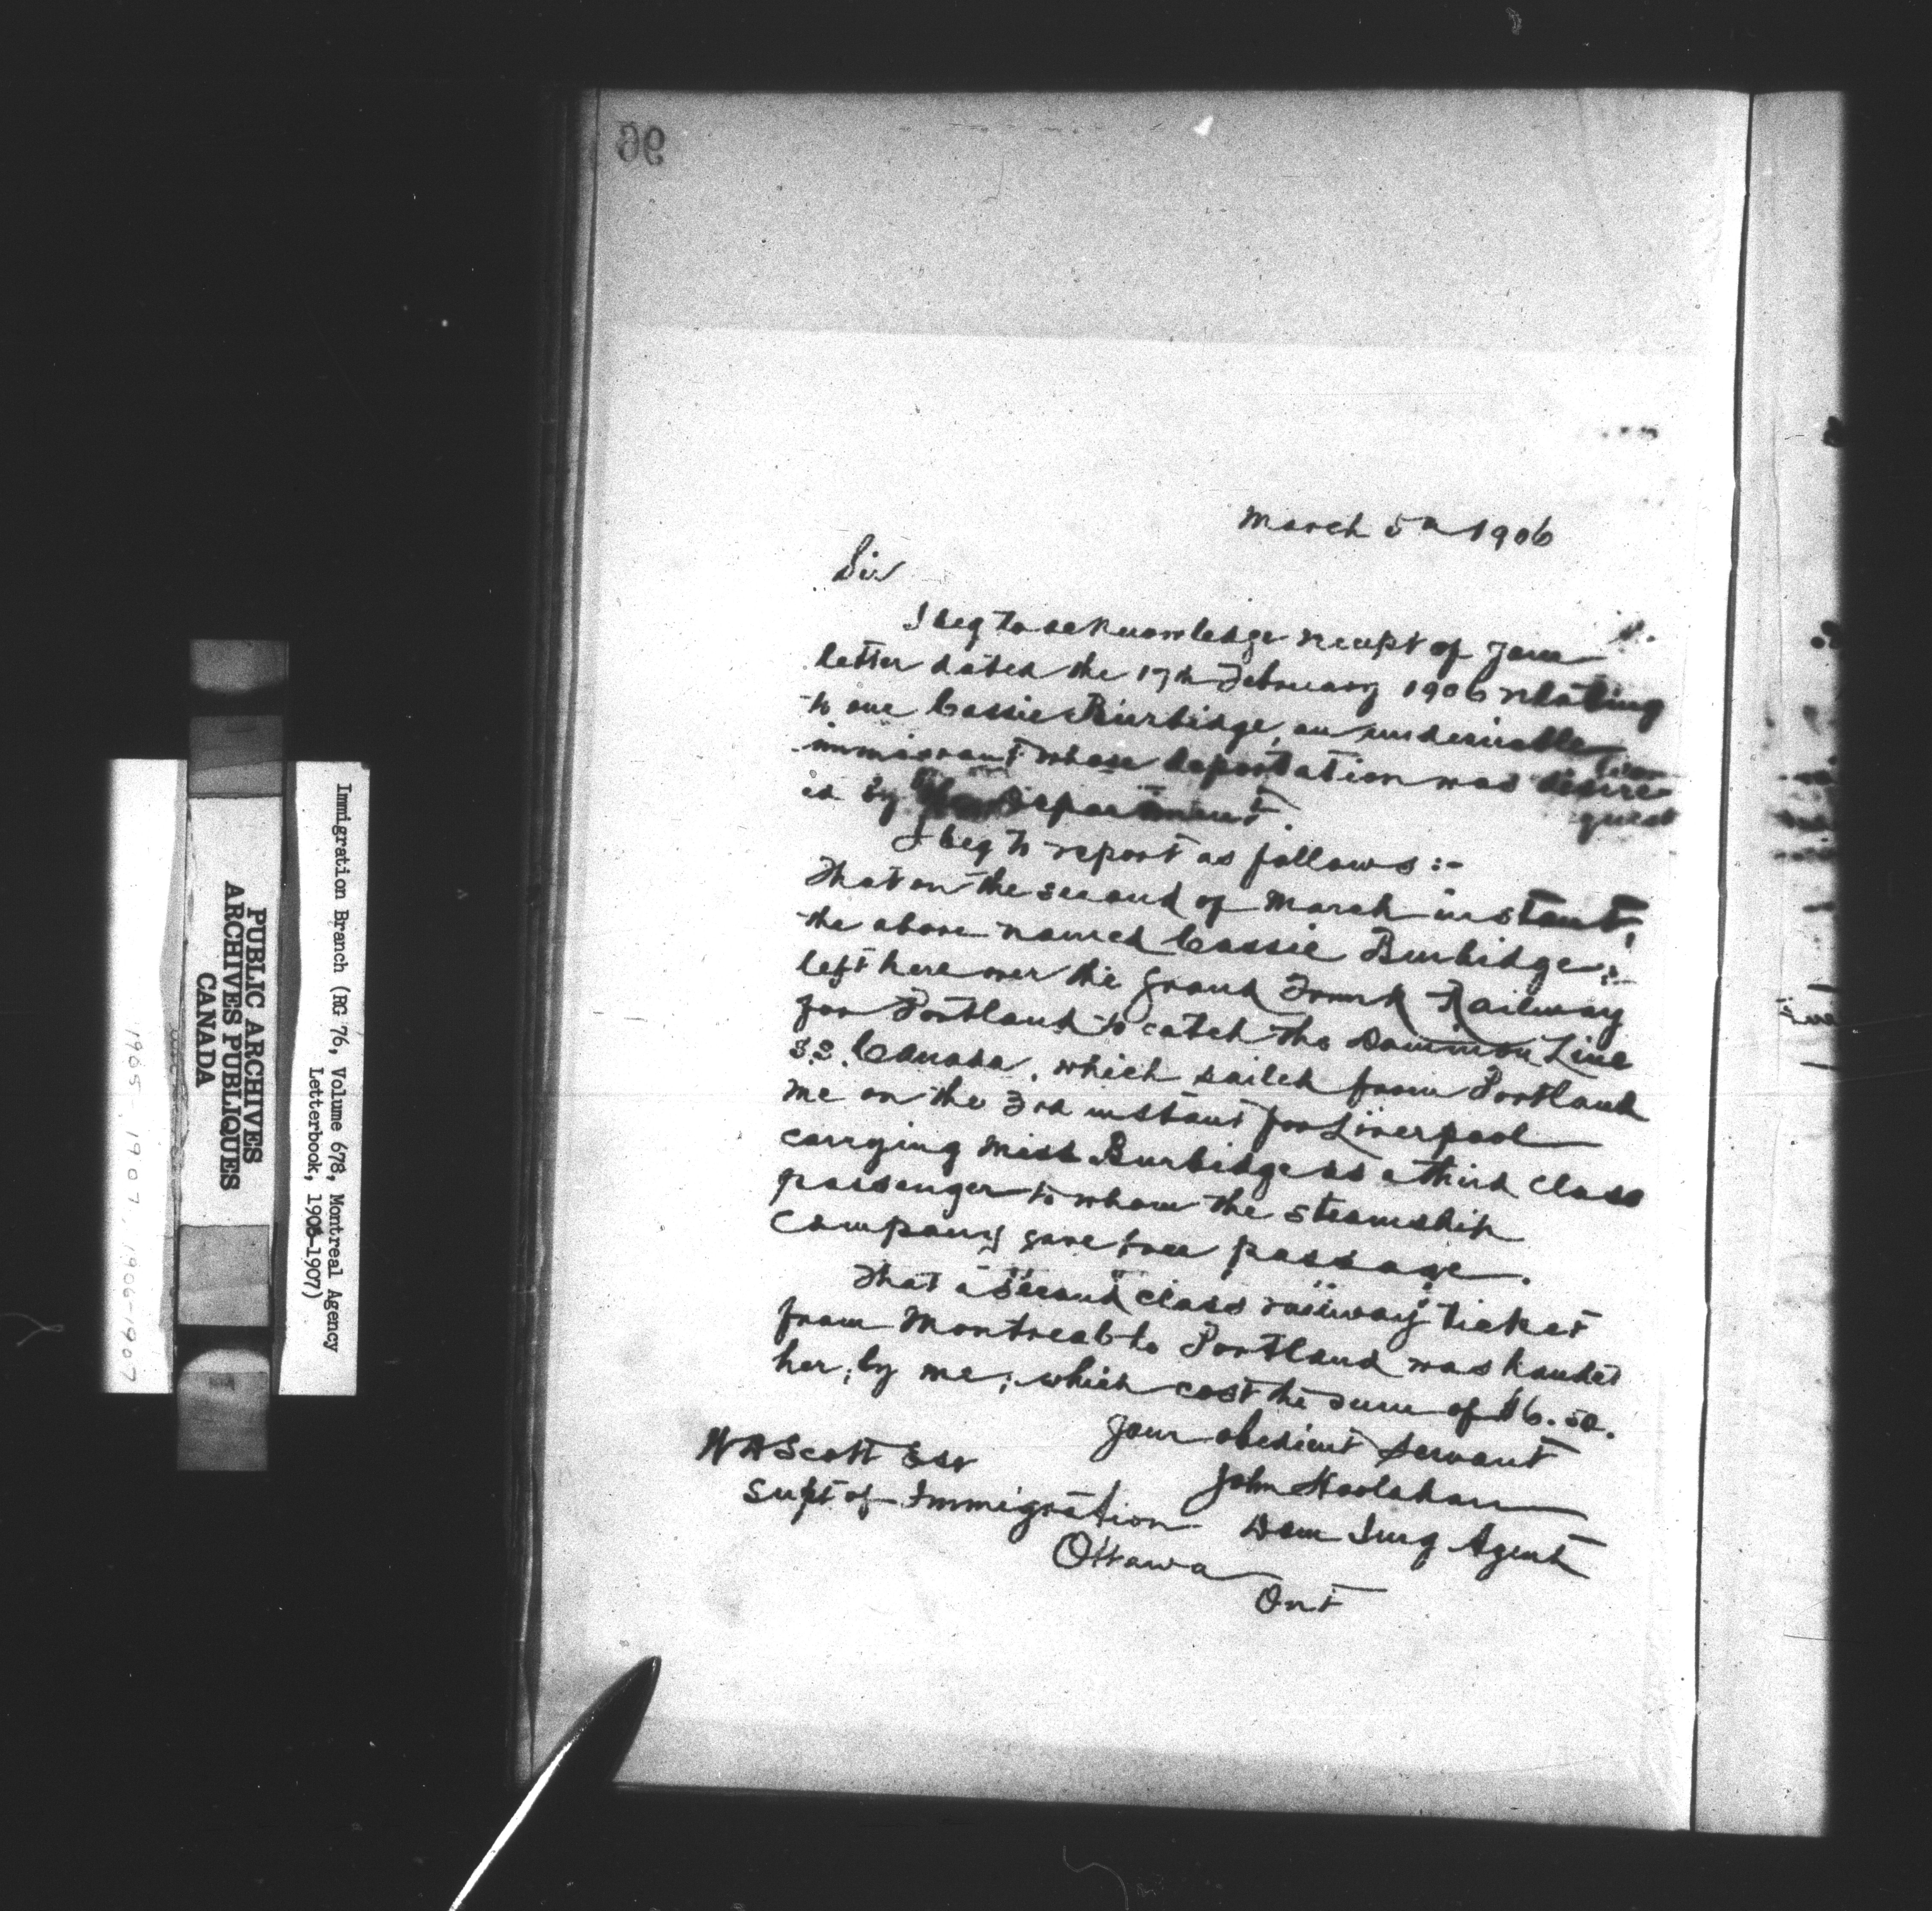 96
March 5th 1906
Sir
I beg to acknowledge receipt of your
letter dated the 17th February 1906 relating
to one Cassie Burbidge, an undesirable
immigrant whose deportation was desire
ed by the Department.
I beg to report as follows:-
That on the second of March instant,
the above named Cassie Burbidge:
left here over the Grand Trunk Railway
for Portland to catch the Dominion Line
S.S. Canada, which sailed from Portland
Me on the 3rd instant for Liverpool
carrying Miss Burbidge as a third class
passenger to whom the steamship
company gave free passage.
That a second class railway ticket
from Montreal to Portland was handed
her; by me; which cost the sum of $6.50.
Your obedient servant
John Hoolahan
Dom Img Agent
W A Scott Esr
Supt of Immigration
Ottawa
Ont
Immigration Branch (RG 76, Volume 678, Montreal Agency
Letterbook, 1906-1907)
PUBLIC ARCHIVES
ARCHIVES PUBLIQUES
CANADA
1905-1907, 1906-1907